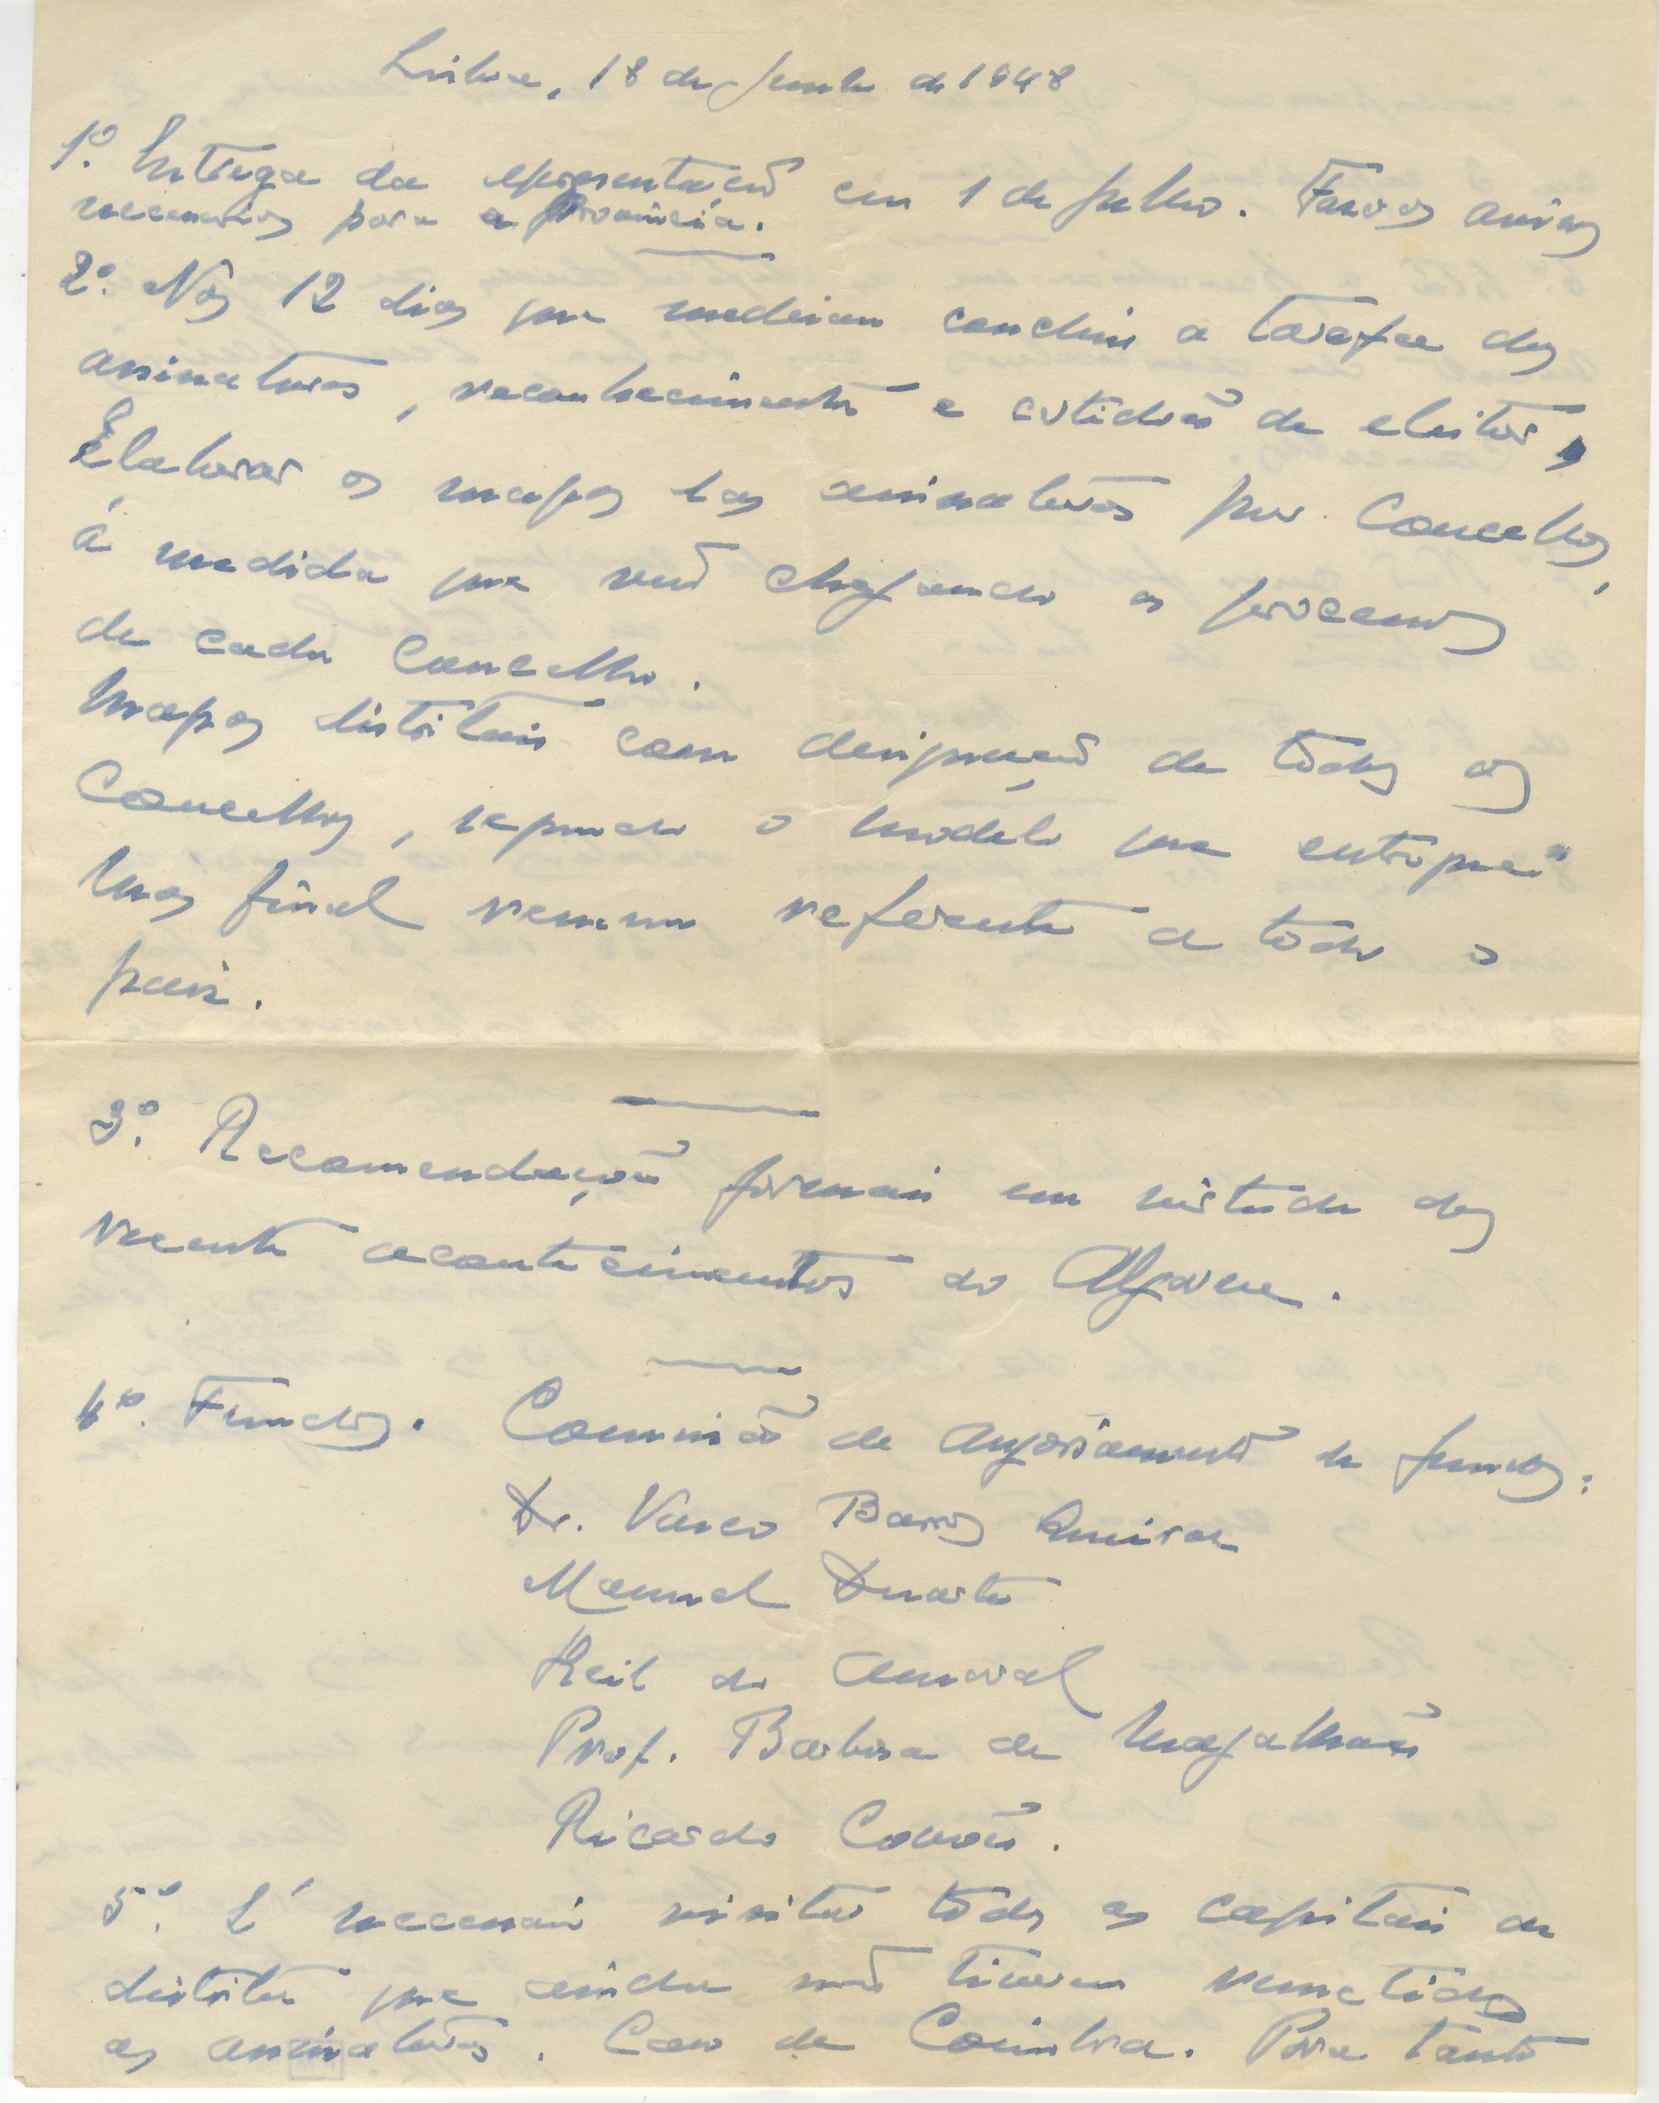 Lisboa, 18 de Junho de 1948
1º. Entrega da representação em 1 de Julho. Fazer os avisos
necessarios para a provincia.
2º. Nos 12 dias que medeiam concluir a tarefa das
assinaturas, reconhecimento e certidões de eleitor,
Elaborar os mapas das assinaturas por Concelhos,
á medida que vão chegando os processos
de cada Concelho.
Mapas distritais com designação de todos os
Concelhos, segundo o modelo que entreguei
Mapa final resumo referente a todo o
país.
3º. Recomendações formais em virtude dos
recentes acontecimentos do Algarve.
4º. Fundos. Comissão de angariamento de fundos:
Dr. Vasco Barros Queiroz
Manuel Duarte
Keil do Amaral
Prof. Barbosa de Magalhães
Ricardo
5º. É necessario visitar todas as capitais de
distrito que ainda não tiveram remetido
as assinaturas. Caso de Coimbra. Para tanto